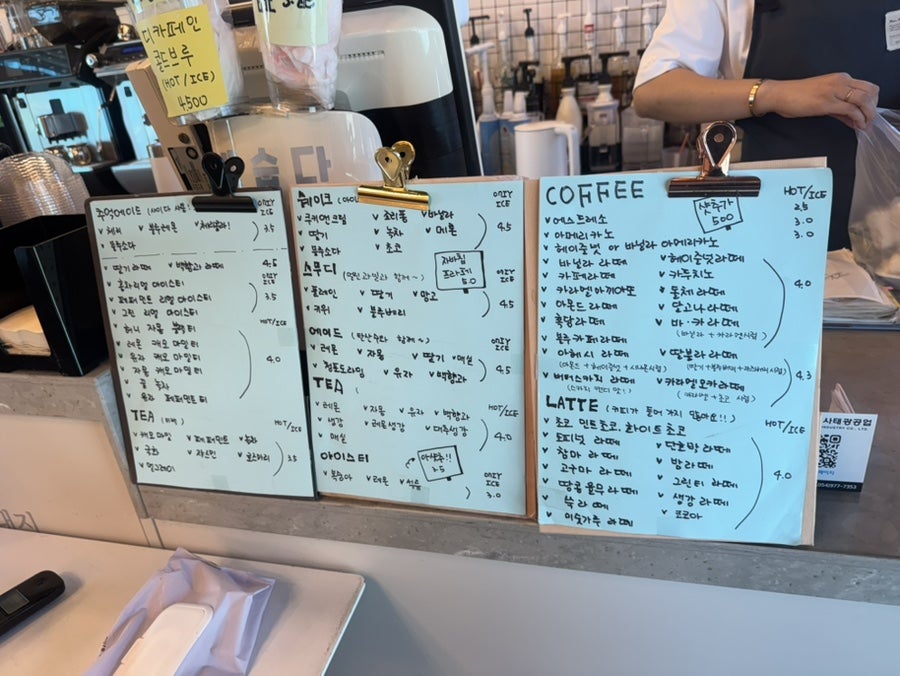 디카페인
콜드브루
(HOT/ICE)
4,500
ONLY
ICE
체리
블루레몬
3.5
블루소다
딸기 라떼
백향과 라떼
4.5
ONLY
ICE
페퍼민트 리얼 아이스티
3.5
그린 리얼 아이스티
HOT/ICE
레몬 캐모마일티
유자 캐모마일티
자몽 캐모마일티
4.0
귤 녹차
유자 페퍼민트티
TEA (티백)
HOT/ICE
캐모마일
페퍼민트
녹차
국화
자스민
로즈마리
3.5
얼그레이
쉐이크
ONLY
ICE
쿠키앤크림
초리풀
바닐라
딸기
녹차
메론
4.5
블루소다
초코
자바칩
프라페
5.0
스무디
ONLY
ICE
플레인
딸기
망고
4.5
키위
블루베리
에이드 (탄산수와 함께~)
ONLY
ICE
레몬
자몽
딸기
매실
청포도라임
유자
백향과
4.5
TEA
HOT/ICE
레몬
자몽
유자
백향과
생강
레몬생강
대추생강
4.0
매실
아이스티
아샷추!!
3.5
ONLY
ICE
복숭아
레몬
석류
3.0
COFFEE
샷추가
500
HOT/ICE
에스프레소
2.5
아메리카노
3.0
헤이즐넛 or 바닐라 아메리카노
3.0
바닐라 라떼
헤이즐넛라떼
카페라떼
카푸치노
카라멜마끼아또
돌체라떼
4.0
아몬드라떼
달고나라떼
흑당라떼
바·카라떼
(바닐라 + 카라멜시럽)
블루카페라떼
아헤시 라떼
땅블라 라떼
(아몬드 + 헤이즐넛 + 시나몬시럽)
4.3
버터스카치 라떼
카라멜모카라떼
(스카치 캔디 맛!)
(카라멜 + 초코 시럽)
LATTE (커피가 들어가지 않아요!!)
HOT/ICE
초코, 민트초코, 화이트초코
토피넛 라떼
단호박 라떼
참마 라떼
밤라떼
고구마 라떼
그린티 라떼
4.0
땅콩율무라떼
생강라떼
쑥라떼
코코아
미숫가루 라떼
사태광공업
INDUSTRY CO., LTD.